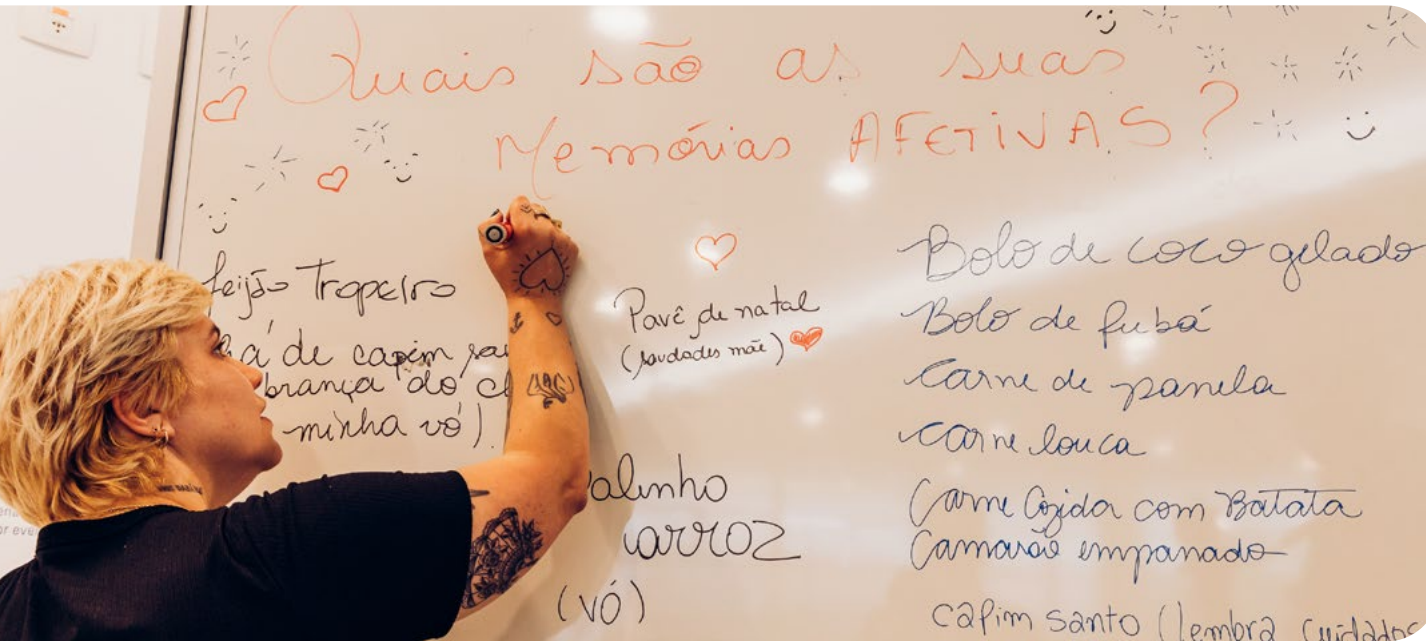 Quais são as suas
Memórias AFETIVAS?
feijão Tropeiro
de capim
minha vó)
Pavê de natal
(saudades mãe)
arroz
(vó)
Bolo de coco gelado
Bolo de fubá
Carne de panela
Carne louca
Carne Cozida com Batata
Camarão empanado
capim santo (lembra cuidados